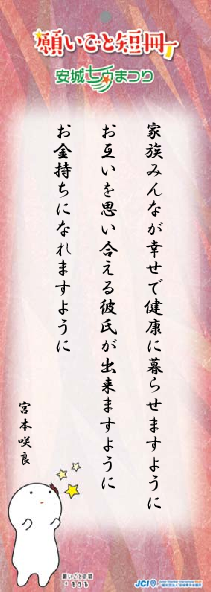 願いごと短冊
安城七夕まつり
家族みんなが幸せで健康に暮らせますように
お互いを思い合える彼氏が出来ますように
お金持ちになれますように
宮本咲良
願いごと短冊
JCI